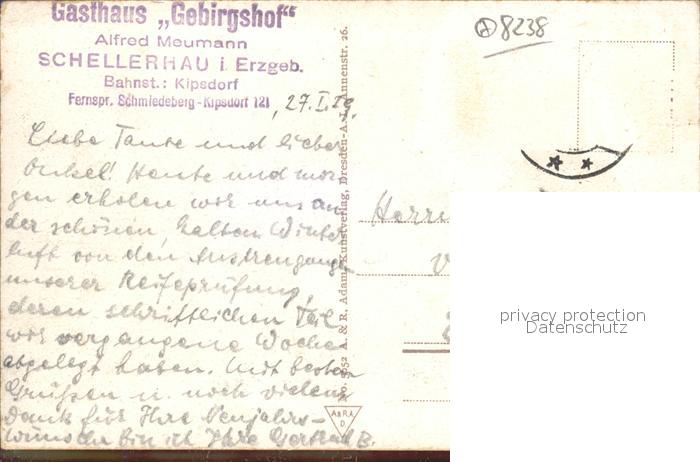 Gasthaus „Gebirgshof“
Alfred Meumann
SCHELLERHAU i. Erzgeb.
Bahnst.: Kipsdorf
Fernspr. Schmiedeberg-Kipsdorf 121
, 27. I. 29.
Liebe Tante und lieber
Onkel! Heute und mor-
gen erholen wir uns an
der schönen, kalten Winter-
luft von den Anstrengungen
unserer Reifeprüfung,
deren schriftlichen Teil
wir vergangene Woche
abgelegt haben. Mit besten
Grüßen u. noch vielem
Dank für Ihre Neujahrs-
wünsche bin ich Ihre Gertrud B.
No. 5952 A. & R. Adam, Kunstverlag, Dresden-A., Annenstr. 26.
A&RA
D.
8238
Herrn
privacy protection
Datenschutz